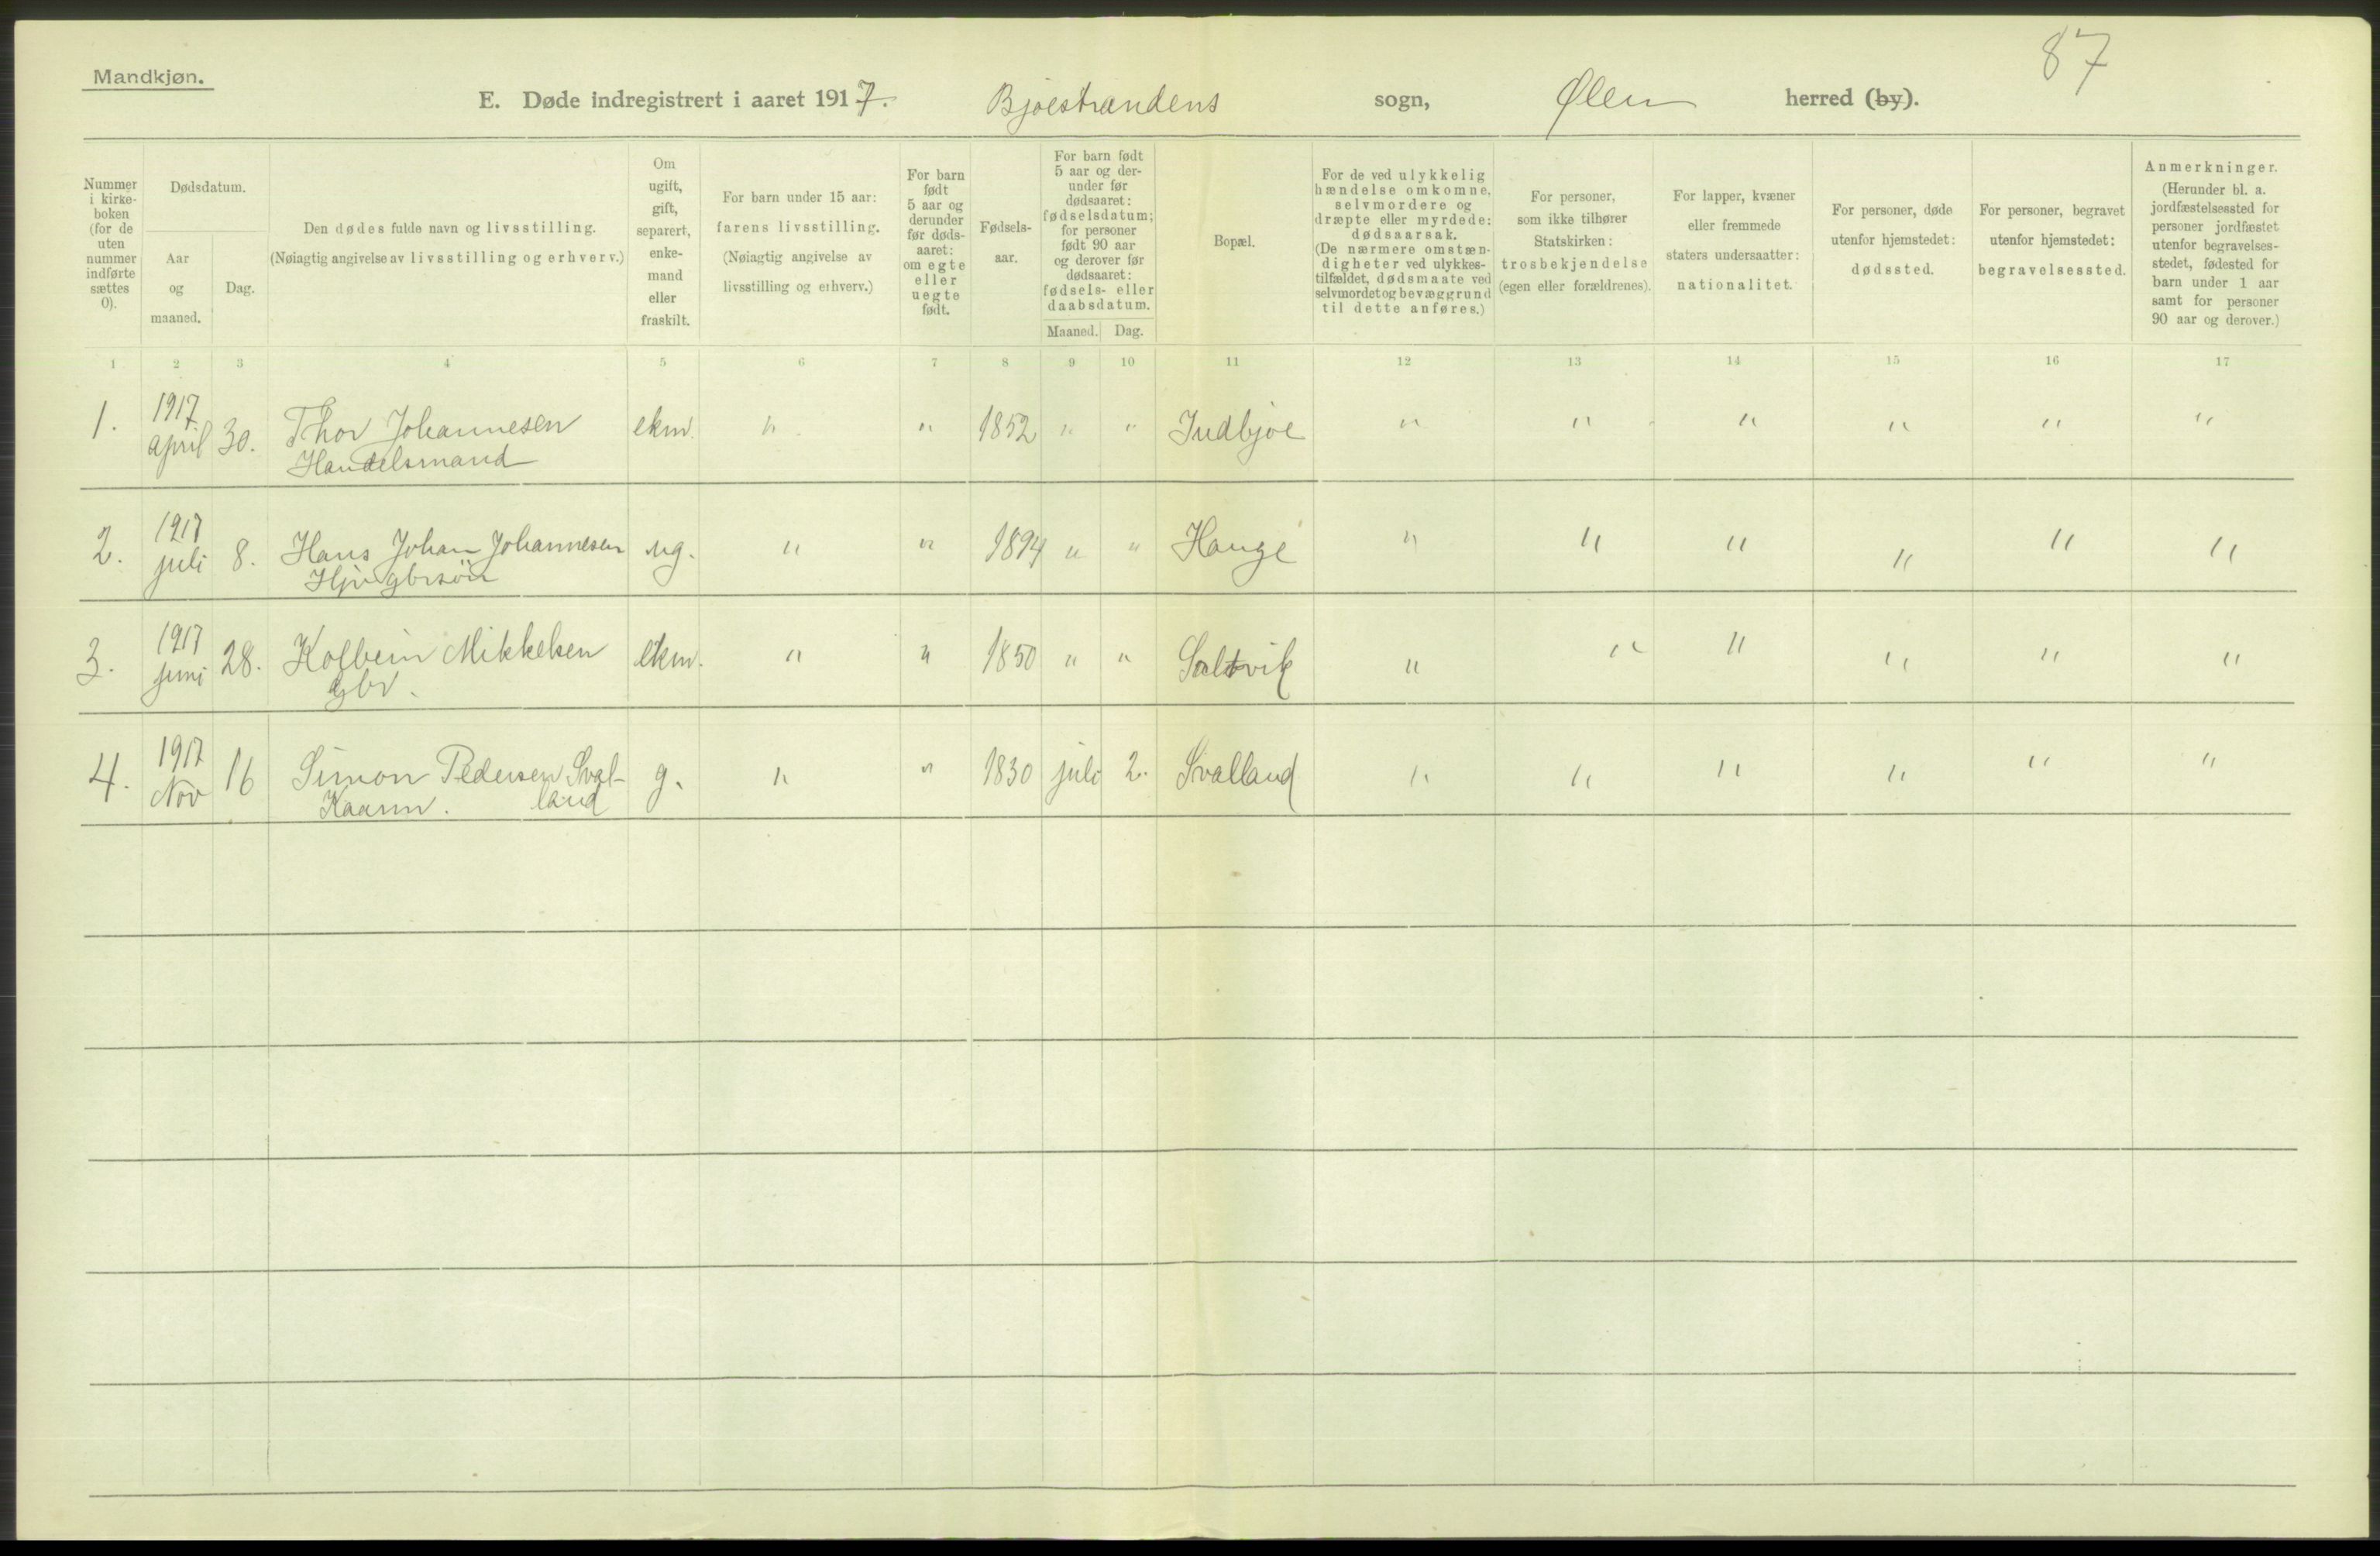 87
Mandkjøn.
E. Døde indregistrert i aaret 1917. Bjoestrandens sogn, Ølen herred (by).
Nummer i kirke-boken (for de uten nummer indførte sættes 0).
Dødsdatum.
Aar og maaned.
Dag.
Den dødes fulde navn og livsstilling.
(Nøiagtig angivelse av livsstilling og erhverv.)
Om ugift, gift, separert, enke-mand eller fraskilt.
For barn under 15 aar: farens livsstilling.
(Nøiagtig angivelse av livsstilling og erhverv.)
For barn født 5 aar og derunder før døds-aaret: om egte eller uegte født.
Fødsels-aar.
For barn født 5 aar og der-under før dødsaaret: fødselsdatum; for personer født 90 aar og derover før dødsaaret: fødsels- eller daabsdatum.
Maaned. Dag.
Bopæl.
For de ved ulykkelig hændelse omkomne, selvmordere og dræpte eller myrdede: dødsaarsak.
(De nærmere omstæn-digheter ved ulykkes-tilfældet, dødsmaate ved selvmordet og bevæggrund til dette anføres.)
For personer, som ikke tilhører Statskirken: trosbekjendelse (egen eller forældrenes).
For lapper, kvæner eller fremmede staters undersaatter: nationalitet.
For personer, døde utenfor hjemstedet: dødssted.
For personer, begravet utenfor hjemstedet: begravelsessted.
Anmerkninger.
(Herunder bl. a. jordfæstelsessted for personer jordfæstet utenfor begravelses-stedet, fødested for barn under 1 aar samt for personer 90 aar og derover.)
1 2 3 4 5 6 7 8 9 10 11 12 13 14 15 16 17
1. 1917 april 30. Thor Johannesen ekm. " " 1852 " " Indbjoe " " " " " "
Handelsmand
2. 1917 juli 8. Hans Johan Johannesen ug. " " 1894 " " Hauge " " " " " "
3. 1917 juni 28. Kolbein Mikkelsen ekm. " " 1850 " " Saltvik " " " " " "
gbr.
4. 1917 Nov 16 Simon Pedersen Sval- g. " " 1830 juli 2. Svalland " " " " " "
Kaarm. land